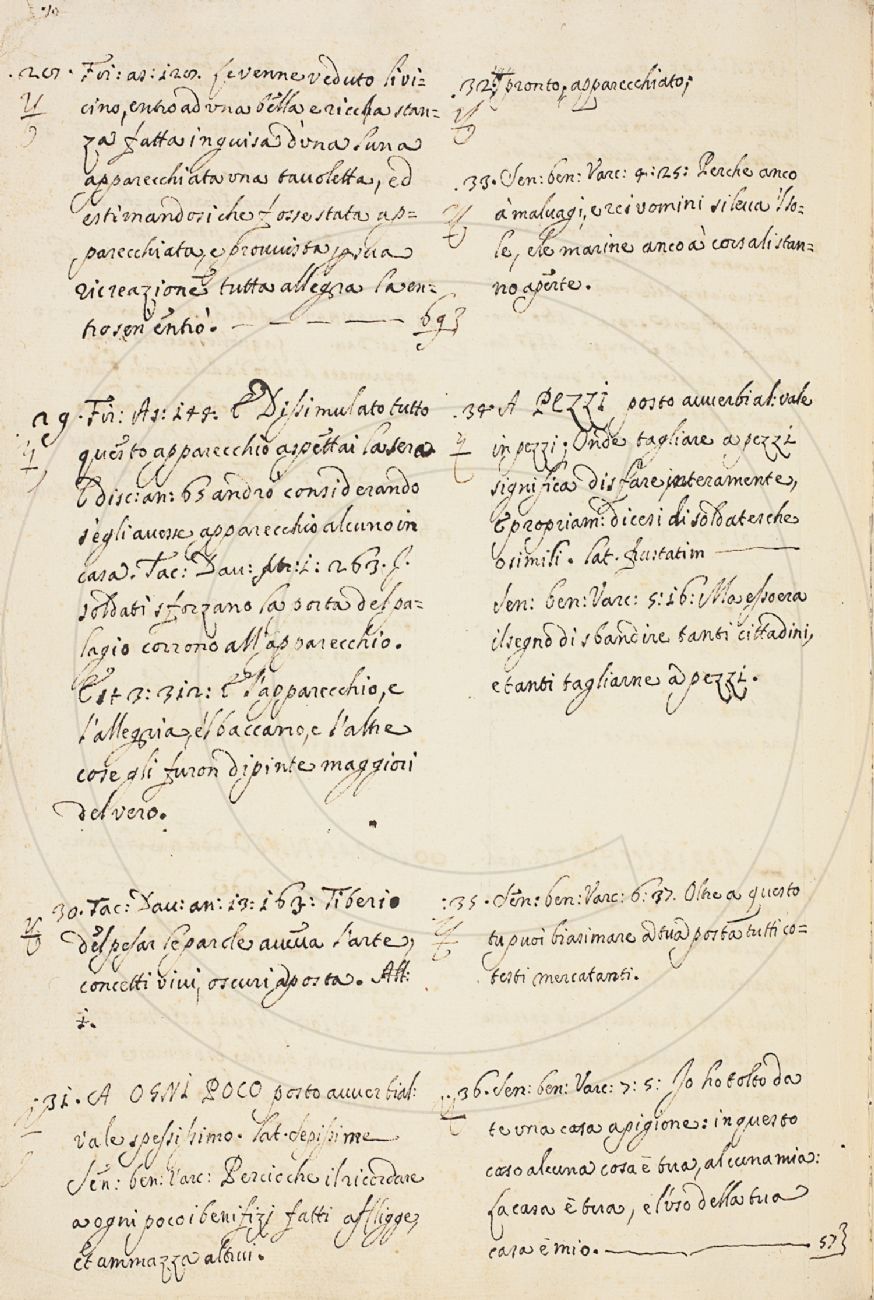 .28. Fir: as: 128. Le venne veduto li vi=
cino, entro ad vna bella e riccha stan=
za fatta in guisa d'vna luna
apparecchiata vna tauoletta, ed
estimandosi che fosse stata ap=
parecchiata, e prouuista, p sua
ricreazione tutta allegra la en=
tro sen' entrò. 69}
29. Fir: As: 144: E Dissimulato tutto
questo apparecchio aspettai la sera
E disc: an: 63 andrò considerando
s'egli auesse apparecchio alcuno in
casa. Tac: Dau: 1: 263. I
soldati sforzano la porta del pa=
lagio corrono all'apparecchio.
E st 3: 312: E l'apparecchio, e
l'allegria, e'l baccano, e l'altre
cose gli furon dipinte maggiori
del vero.
30. Tac: Dau: an: 13: 163: Tiberio
del pesar le parole aueua l'arte,
concetti viui, oscuri aposta. All:
1.
31. A OGNI POCO posto auuerbial:
vale spessissimo. Lat. Sepissime
Sen: ben: Varc: Percioche il ricordare
a ogni poco i benifizj fatti affligge,
et ammazza altrui.
32. pronto, apparecchiato;
33. Sen: ben: Varc: 4: 25: Perche anco
à maluagi, e rei vomini si leua 'l so=
le, e le marine anco à corsali stan=
no aperte.
34 A PEZZI posto auuerbial: vale
in pezzi; Onde tagliare a pezzi
significa disfare interamente,
E propriam: dicesi di soldatesche
ò simili. Lat. frustatim
Sen: ben: Varc: 5: 16: Ma esso era
il segno di sbandire tanti cittadini,
e tanti tagliarne a pezzi.
35. Sen: ben: Varc: 6: 37. Oltre a questo
tu puoi biasimare a tua posta tutti co=
testi mercatanti.
36. Sen: ben: Varc: 7: 5: Io ho tolto da
te vna casa a pigione: in questo
caso alcuna cosa è tua, alcuna mia:
La casa è tua, e l'vso della tua
casa è mio. 57}